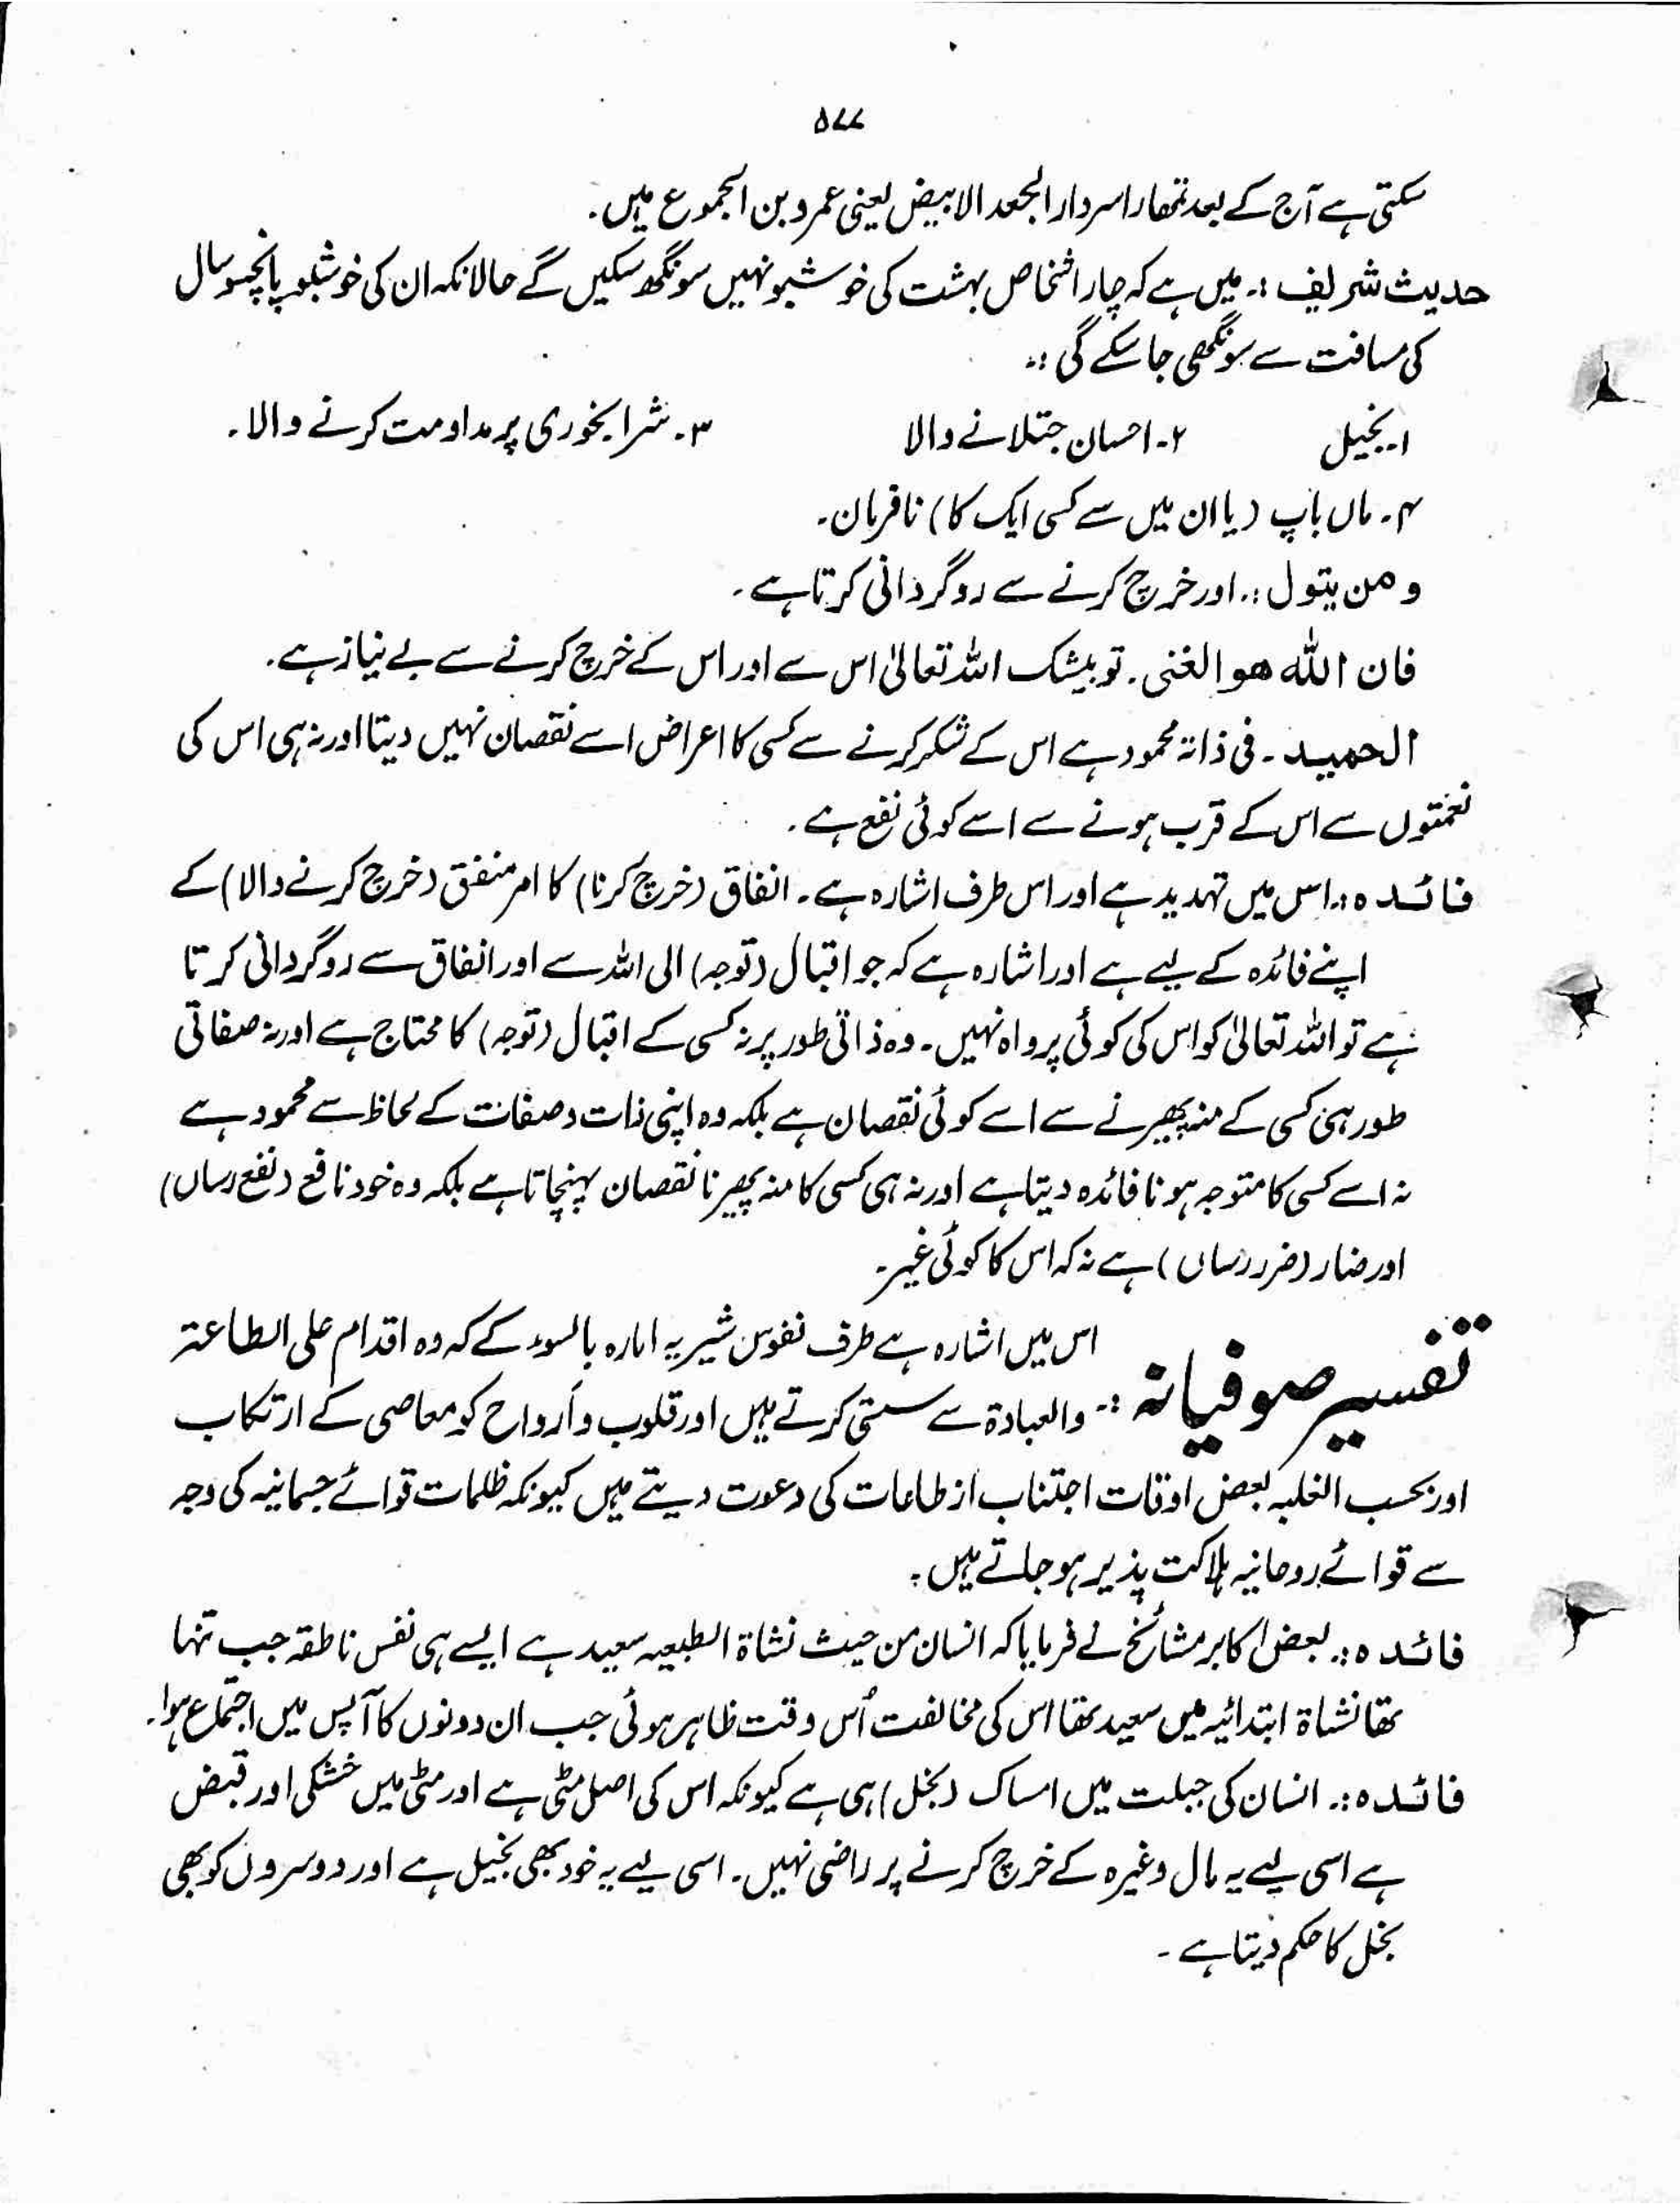 ۵۷۷
سکتی ہے آج کے بعد تمھارا سردار الجعد الابیض یعنی عمرو بن الجموع ہیں۔
حدیث شریف :۔ میں ہے کہ چار اشخاص بہشت کی خوشبو نہیں سونگھ سکیں گے حالانکہ ان کی خوشبو پانچسو سال
کی مسافت سے سونگھی جا سکے گی :۔
۱۔ بخیل ۲۔ احسان جتلانے والا ۳۔ شرابخوری پر مداومت کرنے والا۔
۴۔ ماں باپ (یا ان میں سے کسی ایک کا) نافرمان۔
و من یتول :۔ اور خرچ کرنے سے روگردانی کرتا ہے۔
فان اللّٰہ ھو الغنی۔ تو بیشک اللہ تعالیٰ اس سے اور اس کے خرچ کرنے سے بے نیاز ہے۔
الحمید۔ فی ذاتہ محمود ہے اس کے شکر کرنے سے کسی کا اعراض اسے نقصان نہیں دیتا اور نہ ہی اس کی
نعمتوں سے اس کے قرب ہونے سے اسے کوئی نفع ہے۔
فائدہ :۔ اس میں تہدید ہے اور اس طرف اشارہ ہے۔ انفاق (خرچ کرنا) کا امر منفق (خرچ کرنے والا) کے
اپنے فائدہ کے لیے ہے اور اشارہ ہے کہ جو اقبال (توجہ) الی اللہ سے اور انفاق سے روگردانی کرتا
ہے تو اللہ تعالیٰ کو اس کی کوئی پرواہ نہیں۔ وہ ذاتی طور پر نہ کسی کے اقبال (توجہ) کا محتاج ہے اور نہ صفاتی
طور ہی کسی کے منہ پھیرنے سے اسے کوئی نقصان ہے بلکہ وہ اپنی ذات و صفات کے لحاظ سے محمود ہے
نہ اسے کسی کا متوجہ ہونا فائدہ دیتا ہے اور نہ ہی کسی کا منہ پھیرنا نقصان پہنچاتا ہے بلکہ وہ خود نافع (نفع رساں)
اور ضار (ضرر رساں) ہے نہ کہ اس کا کوئی غیر۔
تفسیر صوفیانہ :۔ اس میں اشارہ ہے طرف نفوس شیریہ امارہ بالسوء کے کہ وہ اقدام علی الطاعۃ
والعبادۃ سے سستی کرتے ہیں اور قلوب و اَرواح کو معاصی کے ارتکاب
اور بحسب الغلبہ بعض اوقات اجتناب از طاعات کی دعوت دیتے ہیں کیونکہ ظلمات قوائے جسمانیہ کی وجہ
سے قوائے روحانیہ ہلاکت پذیر ہو جاتے ہیں۔
فائدہ :۔ بعض اکابر مشائخ نے فرمایا کہ انسان من حیث نشاۃ الطبعیہ سعید ہے ایسے ہی نفس ناطقہ جب تنہا
تھا نشاۃ ابتدائیہ میں سعید تھا اس کی مخالفت اُس وقت ظاہر ہوئی جب ان دونوں کا آپس میں اجتماع ہوا۔
فائدہ :۔ انسان کی جبلت میں امساک (بخل) ہی ہے کیونکہ اس کی اصل مٹی ہے اور مٹی میں خشکی اور قبض
ہے اسی لیے یہ مال وغیرہ کے خرچ کرنے پر راضی نہیں۔ اسی لیے یہ خود بھی بخیل ہے اور دوسروں کو بھی
بخل کا حکم دیتا ہے۔